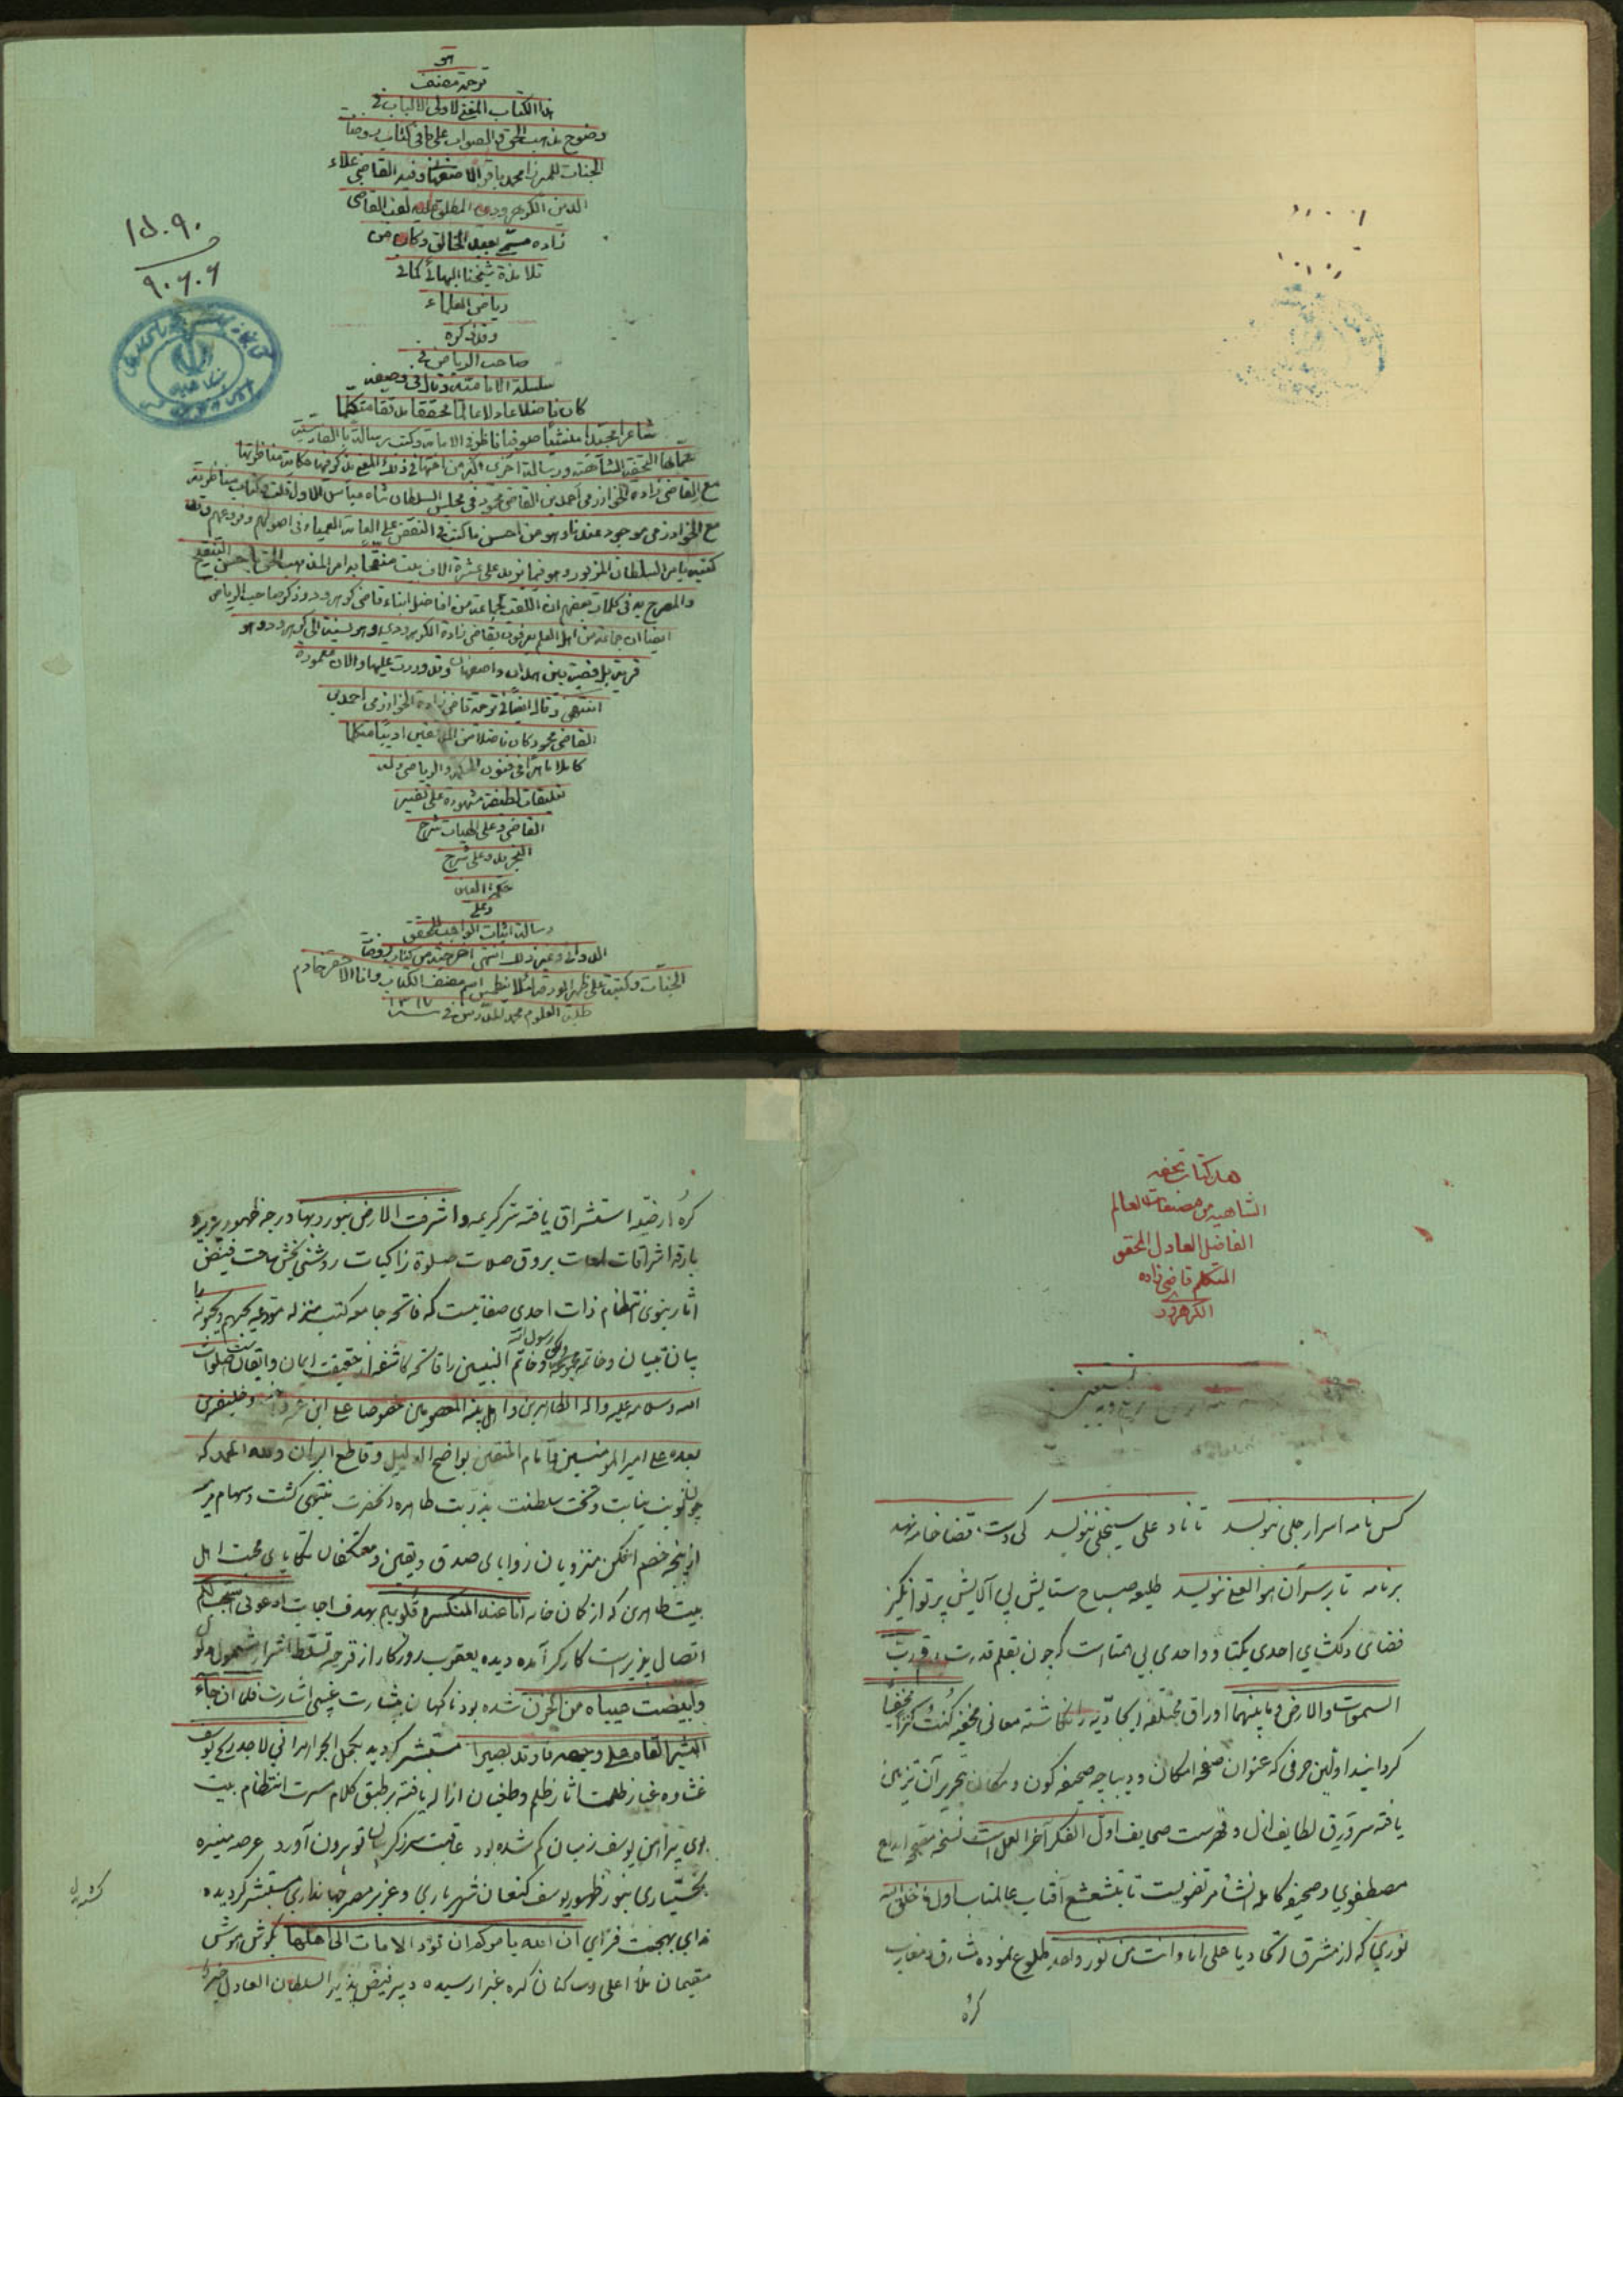 هو
ترجمة مصنف
هذا الكتاب المقنع لاولى الالباب فى
وضوح مذهب الحق و الصواب على ما فى كتاب روضات
الجنات للميرزا محمد باقر الاصفهانى وفيه القاضى علاء
الدين الكرهرودى المطلق عليه لقب القاضى
زاده مسمى بعبد الخالق وكان من
تلامذة شيخنا البهائى كما فى
رياض العلماء
وقد ذكره
صاحب الرياض فى
سلسلة الامامية وقال فى وصفه
كان فاضلا عادلا عالما محققا مدققا متكلما
شاعرا مجيدا منشيا صوفيا ناظر فى الامامة وكتب رسالة بالفارسية
سماها التحفة الشاهية ورسالة اخرى اكبر من اختها فى ذلك المعنى يذكر فيها حكاية مناظرتها
مع القاضى زاده الخوارزمى احمد بن القاضى محمود فى مجلس السلطان شاه عباس الاول قلت وكتاب مناظرته
مع الخوارزمى موجود عندنا وهو من احسن ما كتب فى النقض على العامة العمياء فى اصولهم وفروعهم وقد
كتبه بامر السلطان المزبور وهو فيما يزيد على عشرة الاف بيت منقحا به امر المذهب الحق باحسن التنقيح
والمصرح به فى كلمات بعضهم ان اللقب لجماعة من افاضل ابناء قاضى كرهرود وذكر صاحب الرياض
ايضا ان جماعة من اهل العلم يعرفون بقاضى زاده الكرهرودى وهو نسبة الى كرهرود وهو
قرية بل قصبة بين همدان واصفهان وقد وردت عليها والان معمورة
انتهى وقال ايضا فى ترجمة قاضى زاده الخوارزمى احمد بن
القاضى محمود كان فاضلا من المدققين اديبا متكلما
كاملا ماهرا فى فنون الحكمة والرياضى وله
تعليقات لطيفة مشهورة على تفسير
القاضى وعلى الهيات شرح
التجريد وعلى شرح
حكمة العين
وعلى
رسالة اثبات الواجب للمحقق
الدوانى وغير ذلك انتهى اخرجته من كتاب روضات
الجنات وكتبته على ظهر الورقة لئلا ينطمس اسم مصنف الكتاب وانا الاحقر خادم
طلبة العلوم محمد المدرس فى سنة ١٣١٧
١٥٠٩٠
٩٠٧٠٧
هذا كتاب تحفه
الشاهيه من مصنفات العالم
الفاضل العادل المحقق
المتكلم قاضى زاده
الكرهرود
كس نامه اسرار جلى ننويسد تا ناد على سينجلى ننويسد كى دست قضا خامه نهد
بر نامه تا بر سر آن هو العلى ننويسد طليعه صباح ستايش بى آلايش پرتو انگيز
فضاى دلگشاى احدى يكتا و واحدى بى همتا است كه چون بقلم قدرت رقم رب
السموات والارض وما بينهما اوراق مختلفه ايجاديه را نگاشته معانى مخفيه كنت كنزا مخفيا
گردانيد اولين حرفى كه عنوان صفحه امكان و ديباچه صحيفه كون و مكان بتحرير آن تزيين
يافته سرورق لطايف ازل و فهرست صحايف اول الفكر آخر العمل است نسخه متبحه ابداع
مصطفوى و صحيفه كامله انشاء مرتضويست تا بتشعشع آفتاب عالمتاب اول ما خلق الله
نورى كه از مشرق اتحاد يا على انا وانت من نور واحد طلوع نموده مشارق و مغارب
كرهٔ
كرهٔ ارضيه استشراق يافته سر كريمه واشرقت الارض بنور ربها درجه ظهور پذيرد
بارقه اشراقات لمعات بروق صلات صلوة زاكيات روشنى بخش ساحت فيض
آثار نبوى انتظام ذات احدى صفاتيست كه فاتحه جامع كتب منزله موعد يحبهم ويحبونه را
بيان تبيان و خاتمه مجموعه ولكن رسول الله وخاتم النبيين را فاتحه كاشفه از حقيقت ايمان و ايقانست صلوات
الله وسلامه عليه واله الطاهرين واهل بيته المعصومين خصوصا على ابن عمه واخيه وخليفته من
بعده على امير المومنين وامام المتقين بواضح الدليل وقاطع البرهان ولله الحمد كه
چون نوبت نيابت و تخت سلطنت بذريت طاهره آنحضرت منتهى گشت وسهام مر
از پنجه خصم افكن منزويان زواياى صدق ويقين ومعتكفان تكاياى محبت اهل
بيت طاهرين كه از كان خانه انا عند المنكسرة قلوبهم بهدف اجابت ادعونى استجب لكم
اتصال پذير است كارگر آمده ديده يعقوب روزگار از قرحه تسلط اشرار شمول
وابيضت عيناه من الحزن شده بود ناگهان بشارت غيبى اشارت فلما ان جاء
البشير القاه على وجهه فارتد بصيرا مستبشر گرديد بكحل الجواهر انى لاجد ريح يوسف
غشاوه غبار ظلمت آثار ظلم و طغيان ازاله يافته بر طبق كلام مسرت انتظام بيت
بوى پيراهن يوسف ز ميان گم شده بود عاقبت سر ز گريبان تو بيرون آورد عرصه منيره
بختيارى بنور ظهور يوسف كنعان شهريارى و عزيز مصر جهاندارى مستبشر گرديده
نداى بهجت فزاى ان الله يامركم ان تؤدوا الامانات الى اهلها بگوش هوش
مقيمان ملأ اعلى وساكنان كره غبرا رسيده دبير فيض پذير السلطان العادل